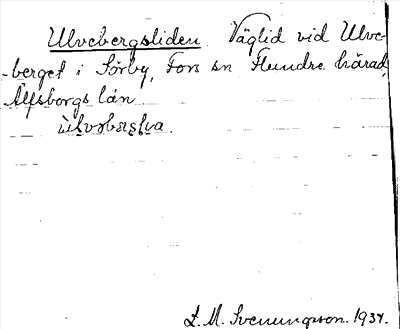 Ulvebergsliden Väglid vid Ulve-
berget i Sörby, Fors sn Flundre härad,
Älfsborgs län
L. M. Svenungsson. 1937.